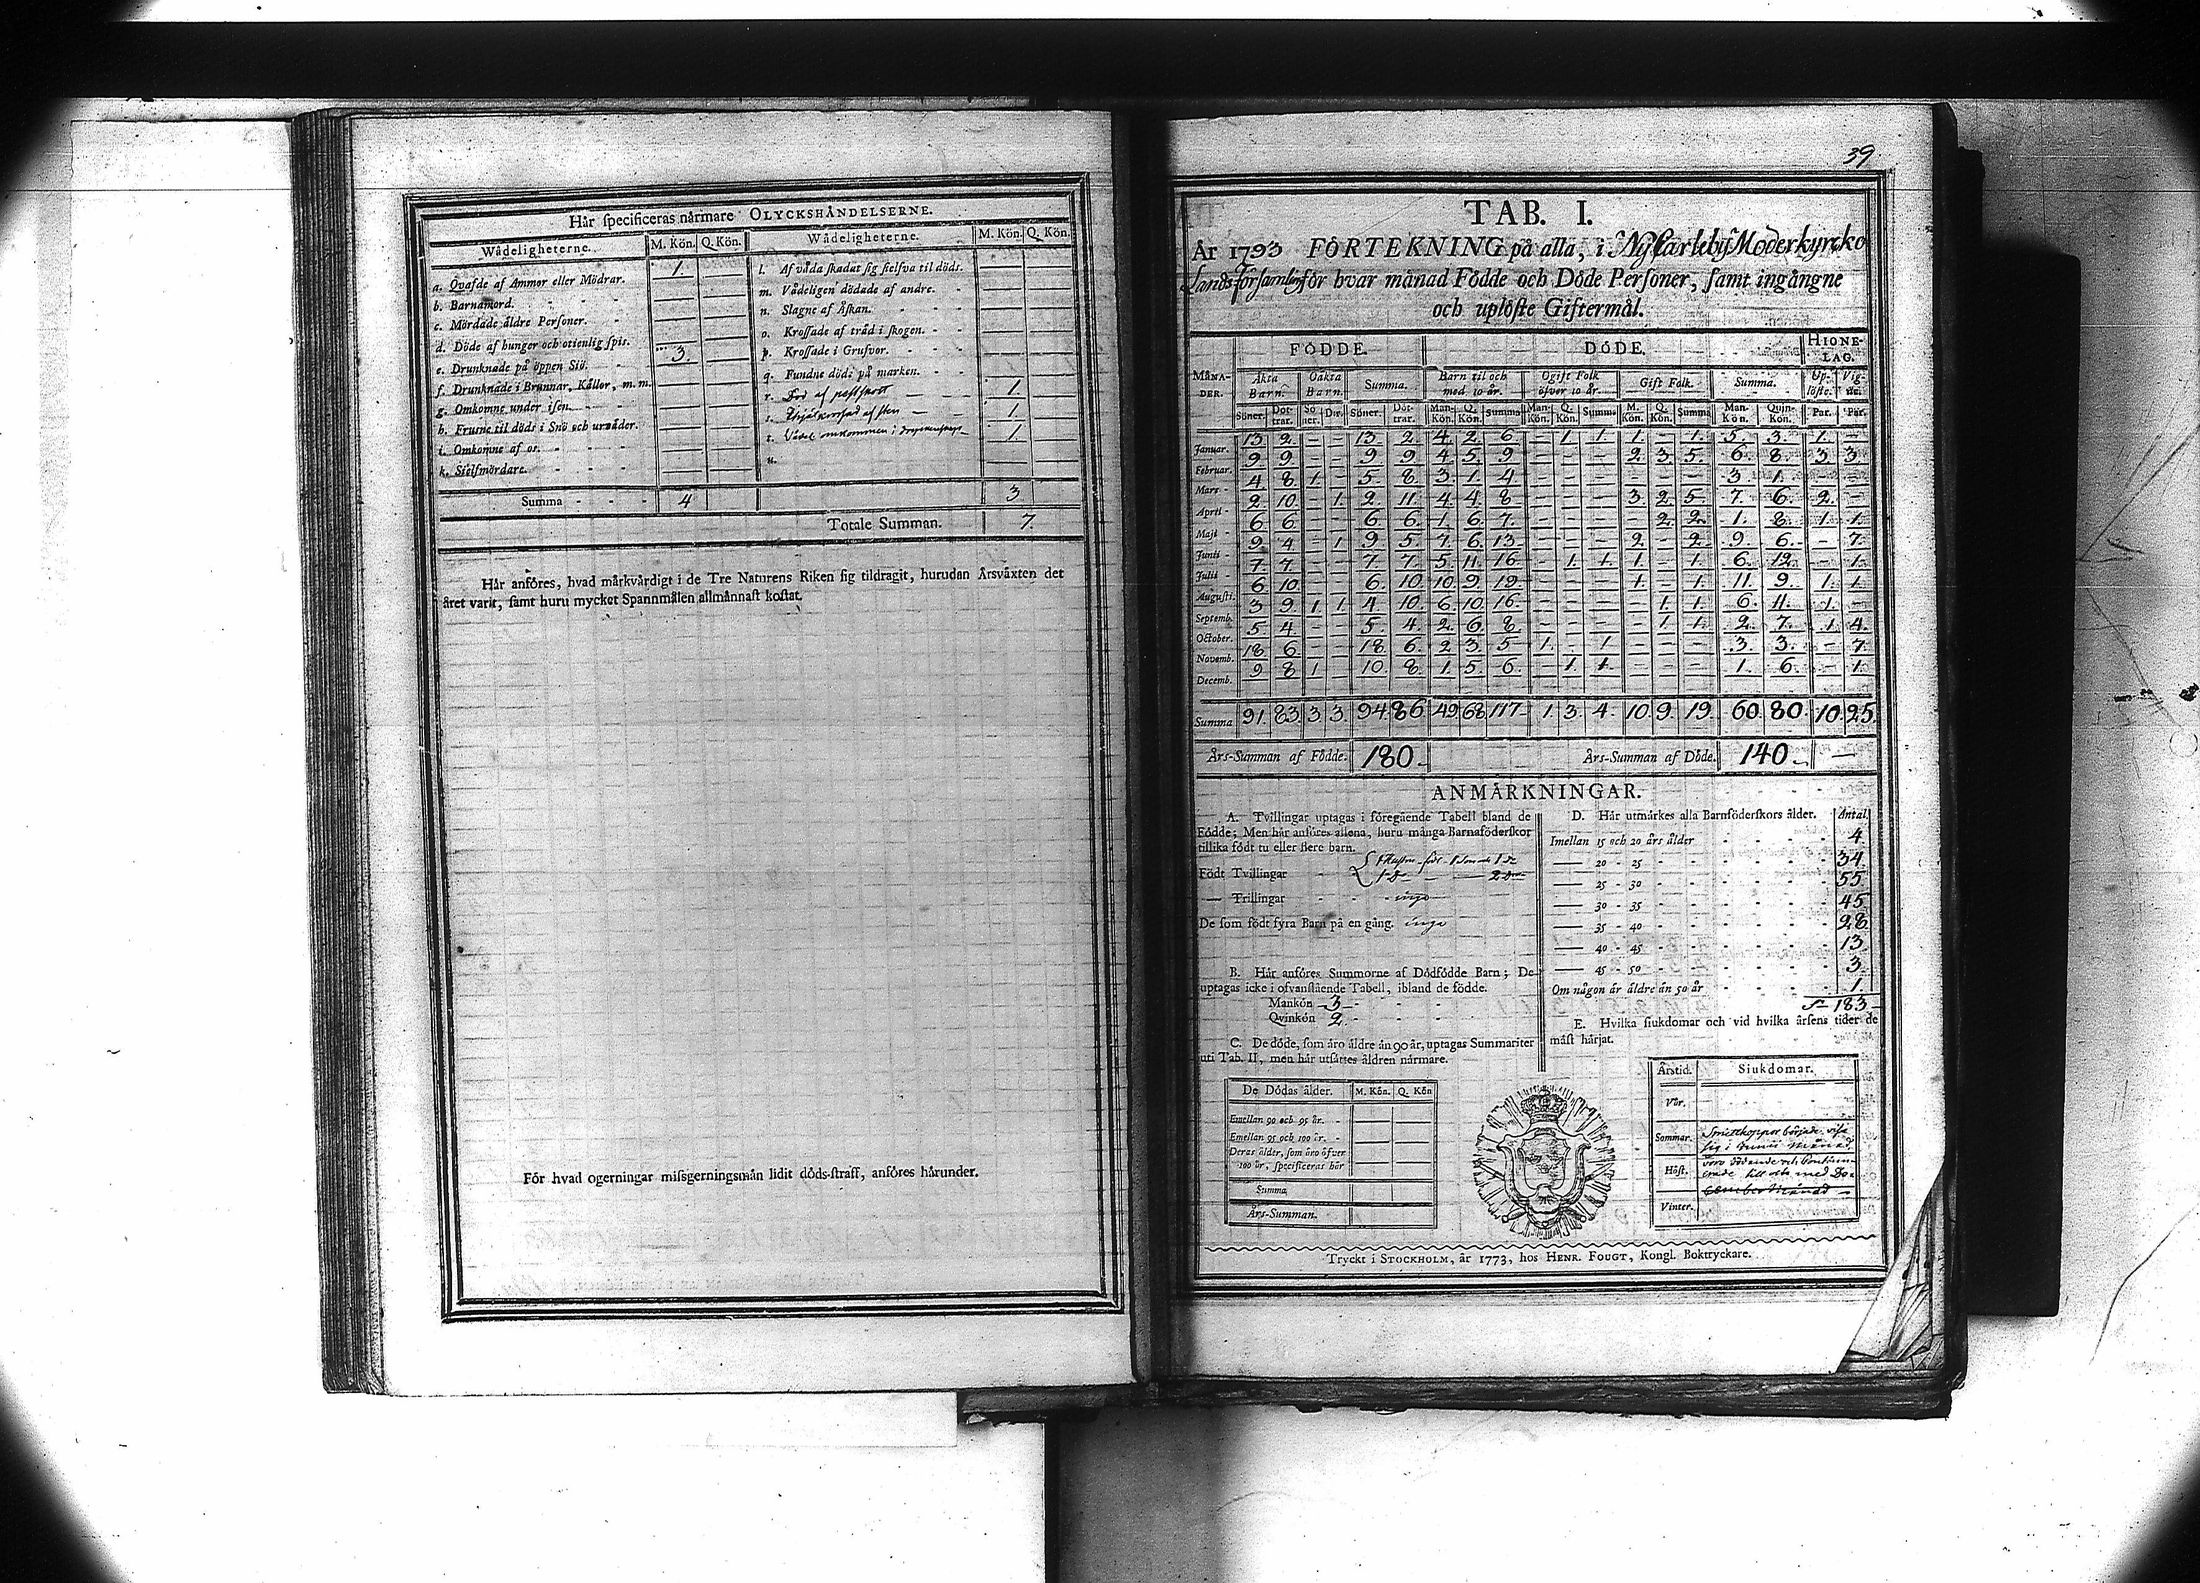 Här specificeras närmare OLYCKSHÄNDELSERNE.
Wådeligheterne. M. Kön. Q. Kön. Wådeligheterne. M. Kön. Q. Kön.
a. Qvafde af Ammor eller Mödrar. 1. —
b. Barnamord. — —
c. Mördade äldre Personer. — —
d. Döde af hunger och otienlig spis. — —
e. Drunknade på öppen Siö. 3. —
f. Drunknade i Brunnar, Källor, m. m. — —
g. Omkomne under isen. — —
h. Frusne til döds i Snö och urväder. — —
i. Omkomne af os. — —
k. Sielfmördare. — —
l. Af våda skadat sig sielfva til döds. — —
m. Vådeligen dödade af andre. — —
n. Slagne af Åskan. — —
o. Krossade af träd i skogen. — —
p. Krossade i Grufvor. — —
q. Fundne döde på marken. — —
r. Död af 1. —
s. Ihjälkrossad af sten 1. —
t. Vådel. omkommen i 1. —
u. — —
Summa - - - 4 3
Totale Summan. 7.
Här anföres, hvad märkvärdigt i de Tre Naturens Riken sig tildragit, hurudan Årsväxten det
året varit, samt huru mycket Spannmålen allmännast kostat.
För hvad ogerningar missgerningsmän lidit döds-straff, anföres härunder.
39.
TAB. I.
År 1793 FÖRTEKNING på alla, i NyCarleby Moderkyrcko
Landsförsamling för hvar månad Födde och Döde Personer, samt ingångne
och uplöste Giftermål.
MÅNADER. FÖDDE. DÖDE. HIONELAG.
Äkta Barn. Oäkta Barn. Summa. Barn til och med 10 år. Ogift Folk öfver 10 år. Gift Folk. Summa. Uplöste. Vigde.
Söner. Döttrar. Söner. Dr. Söner. Döttrar. Mankön. Q. Kön. Summa Mankön. Q. Kön. Summa M. Kön. Q. Kön. Summa Mankön. Quinkön. Par. Par.
Januar. 13 2 — — 13 2 4 2 6 — 1 1 1 — 1 5 3 1 —
Februar. 9 9 — — 9 9 4 5 9 — — — 2 3 5 6 8 3 3
Mars 4 8 1 — 5 8 3 1 4 — — — — — — 3 1 — —
April 2 10 — 1 2 11 4 4 8 — — — 3 2 5 7 6 2 —
Maji 6 6 — — 6 6 1 6 7 — — — — 2 2 1 8 1 1
Junii 9 4 — 1 9 5 7 6 13 — — — 2 — 2 9 6 — 7
Julii 7 7 — — 7 7 5 11 16 — 1 1 1 — 1 6 12 — 1
Augusti. 6 10 — — 6 10 10 9 19 — — — 1 — 1 11 9 1 1
Septemb. 3 9 1 1 4 10 6 10 16 — — — — 1 1 6 11 1 —
October. 5 4 — — 5 4 2 6 8 — — — — 1 1 2 7 1 4
Novemb. 18 6 — — 18 6 2 3 5 1 — 1 — — — 3 3 — 7
Decemb. 9 8 1 — 10 8 1 5 6 — 1 1 — — — 1 6 — 1
Summa 91. 83 3 3 94 86 49 68 117 1 3 4 10 9 19 60 80 10 25
Års-Summan af Födde. 180 Års-Summan af Döde. 140 —
ANMÄRKNINGAR.
A. Tvillingar uptagas i föregående Tabell bland de
Födde; Men här anföres allena, huru många Barnaföderskor
tillika födt tu eller flere barn.
1 Hustru födt 1 Son och 1 Dr
Födt Tvillingar 1 Do — 2 Dr
— Trillingar - - - inga
De som födt fyra Barn på en gång. inga
B. Här anföres Summorne af Dödfödde Barn; De
uptagas icke i ofvanstående Tabell, ibland de födde.
Mankön 3
Qvinkön 2
C. De döde, som äro äldre än 90 år, uptagas Summariter
uti Tab. II, men här utsättes åldren närmare.
De Dödas ålder. M. Kön. Q. Kön
Emellan 90 och 95 år.
Emellan 95 och 100 år.
Deras ålder, som äro öfver
100 år, specificeras här
Summa
Års-Summan.
D. Här utmärkes alla Barnföderskors ålder. Antal.
Imellan 15 och 20 års ålder 4
— 20 - 25 34
— 25 - 30 55
— 30 - 35 45
— 35 - 40 28
— 40 - 45 13
— 45 - 50 3
Om någon är äldre än 50 år 1
S:a 183
E. Hvilka siukdomar och vid hvilka årsens tider de
mäst härjat.
Årstid. Siukdomar.
Vår.
Sommar. Smittkoppor började visa
sig i Junii Månad,
Höst. voro dödande och continu-
erade till och med De-
cember Månad
Vinter.
Tryckt i STOCKHOLM, år 1773, hos HENR. FOUGT, Kongl. Boktryckare.